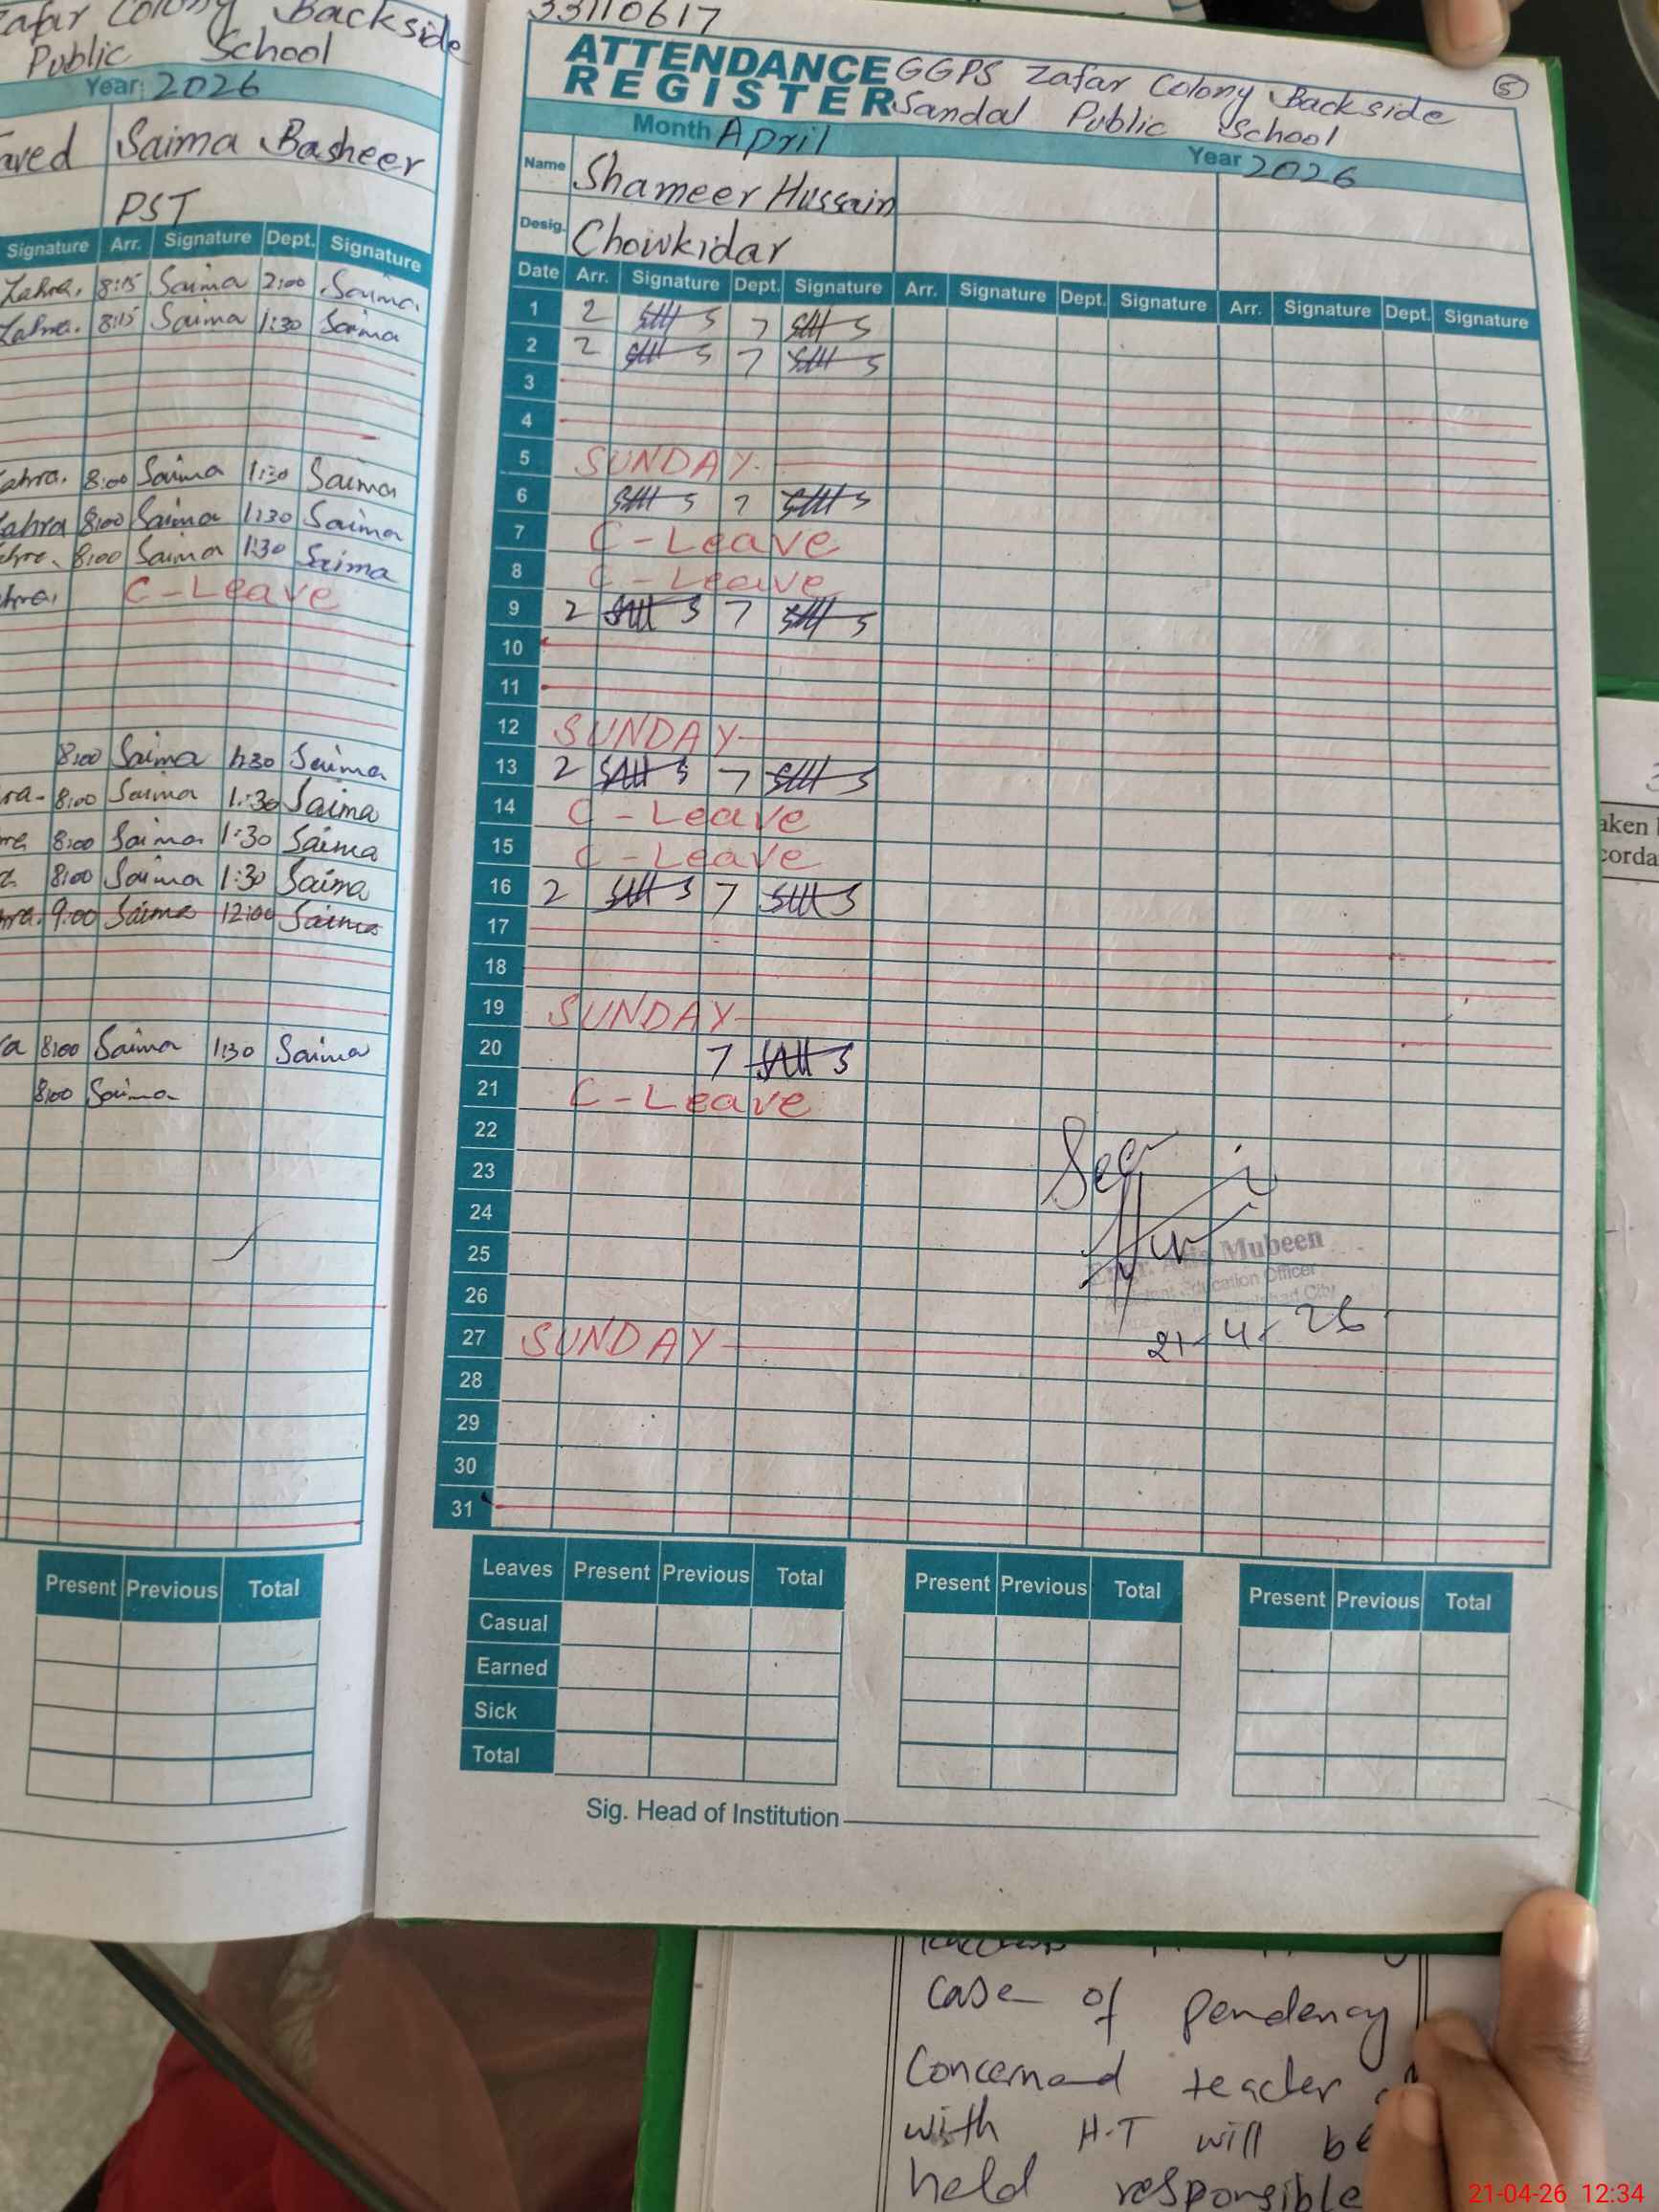 Zafar Colony Backside
Public School
Year: 2026
aved Saima Basheer
PST
Signature Arr. Signature Dept. Signature
Zahra. 8:15 Saima 2:00 Saima.
Zahra. 8:15 Saima 1:30 Saima
ahra. 8:00 Saima 1:30 Saima
ahra 8:00 Saima 1:30 Saima
8:00 Saima 1:30 Saima
C-Leave
8:00 Saima 1:30 Saima
ra- 8:00 Saima 1:30 Saima
8:00 Saima 1:30 Saima
8:00 Saima 1:30 Saima
9:00 Saima 12:00 Saima
a 8:00 Saima 1:30 Saima
8:00 Saima
Present Previous Total
33110617
ATTENDANCE GGPS Zafar Colony Backside
REGISTER Sandal Public School
5
Month April Year 2026
Name Shameer Hussain
Desig. Chowkidar
Date Arr. Signature Dept. Signature Arr. Signature Dept. Signature Arr. Signature Dept. Signature
1 2 7
2 2 7
3
4
5 SUNDAY
6 7
7 C-Leave
8 C-Leave
9 2 7
10
11
12 SUNDAY
13 2 7
14 C-Leave
15 C-Leave
16 2 7
17
18
19 SUNDAY
20 7
21 C-Leave
22
23
24
25
26
27 SUNDAY
28
29
30
31
Seen
Mubeen
Assistant Education Officer
21-4-26
Leaves Present Previous Total Present Previous Total Present Previous Total
Casual
Earned
Sick
Total
Sig. Head of Institution
aken
corda
case of pendency
Concerned teacher
with H.T will be
held responsible
21-04-26 12:34